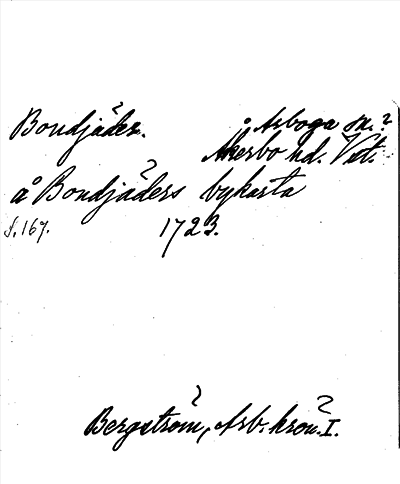 Bondjäder.
Arboga sn.?
Åkerbo hd. Vst.
å Bondjäders bykarta
s. 167.
1723.
Bergström, Arb. krön. I.